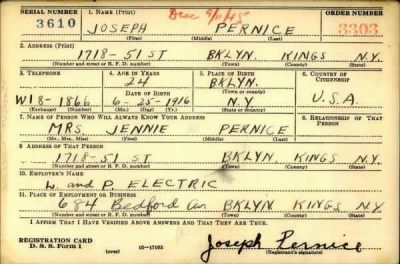 SERIAL NUMBER 1. NAME (Print) ORDER NUMBER
3610 JOSEPH PERNICE 3303
(First) (Middle) (Last)
2. ADDRESS (Print)
1718-51 ST BKLYN. KINGS N.Y.
(Number and street or R. F. D. number) (Town) (County) (State)
3. TELEPHONE 4. AGE IN YEARS 5. PLACE OF BIRTH 6. COUNTRY OF CITIZENSHIP
24 BKLYN.
DATE OF BIRTH (Town or county)
WI8-1866 6-25-1916 N.Y. U.S.A.
(Exchange) (Number) (Mo.) (Day) (Yr.) (State or country)
7. NAME OF PERSON WHO WILL ALWAYS KNOW YOUR ADDRESS 8. RELATIONSHIP OF THAT PERSON
MRS. JENNIE PERNICE
(Mr., Mrs., Miss) (First) (Middle) (Last)
9. ADDRESS OF THAT PERSON
1718-51 ST BKLYN. KINGS N.Y.
(Number and street or R. F. D. number) (Town) (County) (State)
10. EMPLOYER'S NAME
and P. ELECTRIC
11. PLACE OF EMPLOYMENT OR BUSINESS
684 Bedford Av. BKLYN KINGS N.Y.
(Number and street or R. F. D. number) (Town) (County) (State)
I AFFIRM THAT I HAVE VERIFIED ABOVE ANSWERS AND THAT THEY ARE TRUE.
REGISTRATION CARD
D. S. S. Form 1 (over) 16-17105 Joseph Pernice
(Registrant's signature)